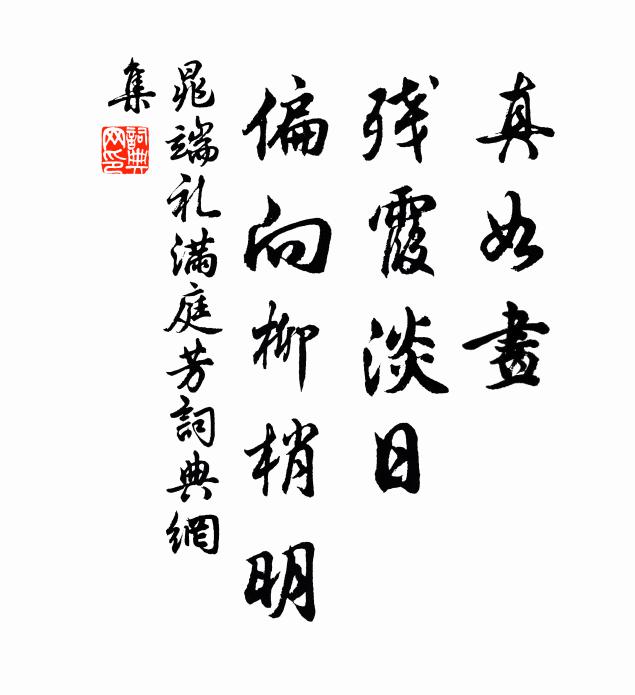 真如畫
残霞淡日
偏向柳梢明
晁端礼满庭芳詞典網
集
詞典
网印